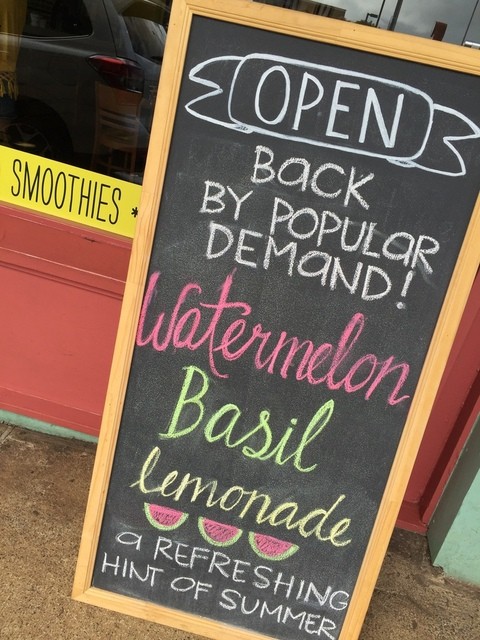 OPEN
BACK
BY POPULAR
DEMAND!
Watermelon
Basil
lemonade
a REFRESHING
HINT OF SUMMER
SMOOTHIES *